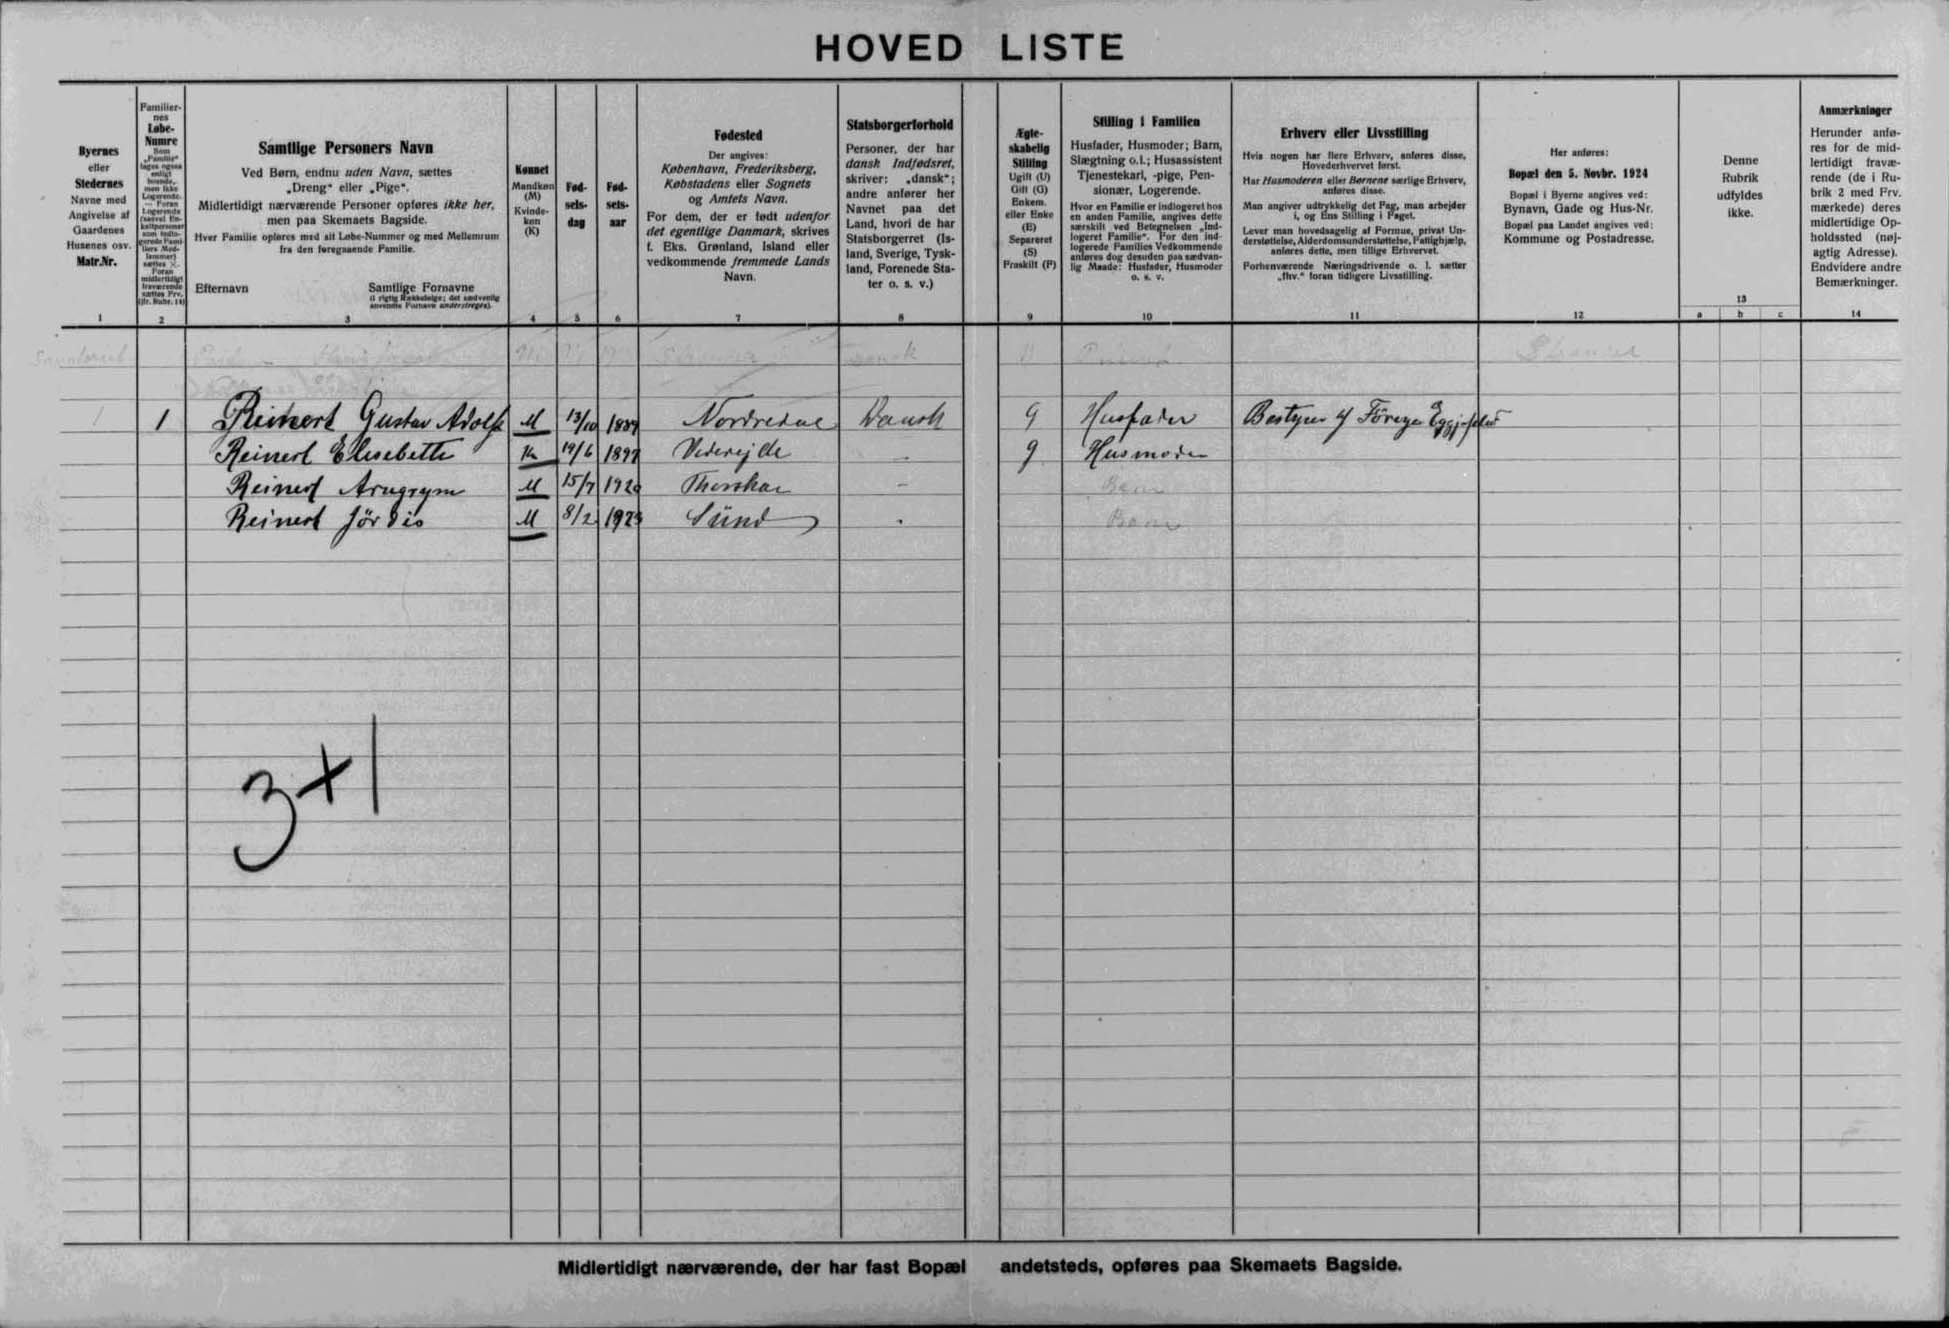 HOVED LISTE
Byernes
eller
Stedernes
Navne med
Angivelse af
Gaardenes
Husenes osv.
Matr.Nr.
1
Familier-
nes
Løbe-
Numre
2
Samtlige Personers Navn
Ved Børn, endnu uden Navn, sættes
„Dreng“ eller „Pige“.
Midlertidigt nærværende Personer opføres ikke her,
men paa Skemaets Bagside.
Hver Familie opføres med sit Løbe-Nummer og med Mellemrum
fra den foregaaende Familie.
Efternavn Samtlige Fornavne
(i rigtig Rækkefølge; det sædvanlig
anvendte Fornavn understreges).
3
Kønnet
Mandkøn
(M)
Kvinde-
køn
(K)
4
Fød-
sels-
dag
5
Fød-
sels-
aar
6
Fødested
Der angives:
København, Frederiksberg,
Købstadens eller Sognets
og Amtets Navn.
For dem, der er født udenfor
det egentlige Danmark, skrives
f. Eks. Grønland, Island eller
vedkommende fremmede Lands
Navn.
7
Statsborgerforhold
Personer, der har
dansk Indfødsret,
skriver: „dansk“;
andre anfører her
Navnet paa det
Land, hvori de har
Statsborgerret (Is-
land, Sverige, Tysk-
land, Forenede Sta-
ter o. s. v.)
8
Ægte-
skabelig
Stilling
Ugift (U)
Gift (G)
Enkem.
eller Enke
(E)
Separeret
(S)
Fraskilt (F)
9
Stilling i Familien
Husfader, Husmoder; Barn,
Slægtning o.l.; Husassistent
Tjenestekarl, -pige, Pen-
sionær, Logerende.
Hvor en Familie er indlogeret hos
en anden Familie, angives dette
særskilt ved Betegnelsen „Ind-
logeret Familie“. For den ind-
logerede Families Vedkommende
anføres dog desuden paa sædvan-
lig Maade: Husfader, Husmoder
o. s. v.
10
Erhverv eller Livsstilling
Hvis nogen har flere Erhverv, anføres disse,
Hovederhvervet først.
Har Husmoderen eller Børnene særlige Erhverv,
anføres disse.
Man angiver udtrykkelig det Fag, man arbejder
i, og Ens Stilling i Faget.
Lever man hovedsagelig af Formue, privat Un-
derstøttelse, Alderdomsunderstøttelse, Fattighjælp,
anføres dette, men tillige Erhvervet.
Forhenværende Næringsdrivende o. l. sætter
„fhv.“ foran tidligere Livsstilling.
11
Her anføres:
Bopæl den 5. Novbr. 1924
Bopæl i Byerne angives ved:
Bynavn, Gade og Hus-Nr.
Bopæl paa Landet angives ved:
Kommune og Postadresse.
12
Denne
Rubrik
udfyldes
ikke.
13
a b c
Anmærkninger
Herunder anfø-
res for de mid-
lertidigt fravæ-
rende (de i Ru-
brik 2 med Frv.
mærkede) deres
midlertidige Op-
holdssted (nøj-
agtig Adresse).
Endvidere andre
Bemærkninger.
14
1 1 Reinert Gustav Adolf M 13/10 1889 Dansk G Husfader Bestyrer
Reinert Elisebette K 19/6 1897 G Husmoder
Reinert Arngrym M 15/7 1920 Barn
Reinert Jördis M 8/2 1923 Sünd Barn
3+1
Midlertidigt nærværende, der har fast Bopæl andetsteds, opføres paa Skemaets Bagside.